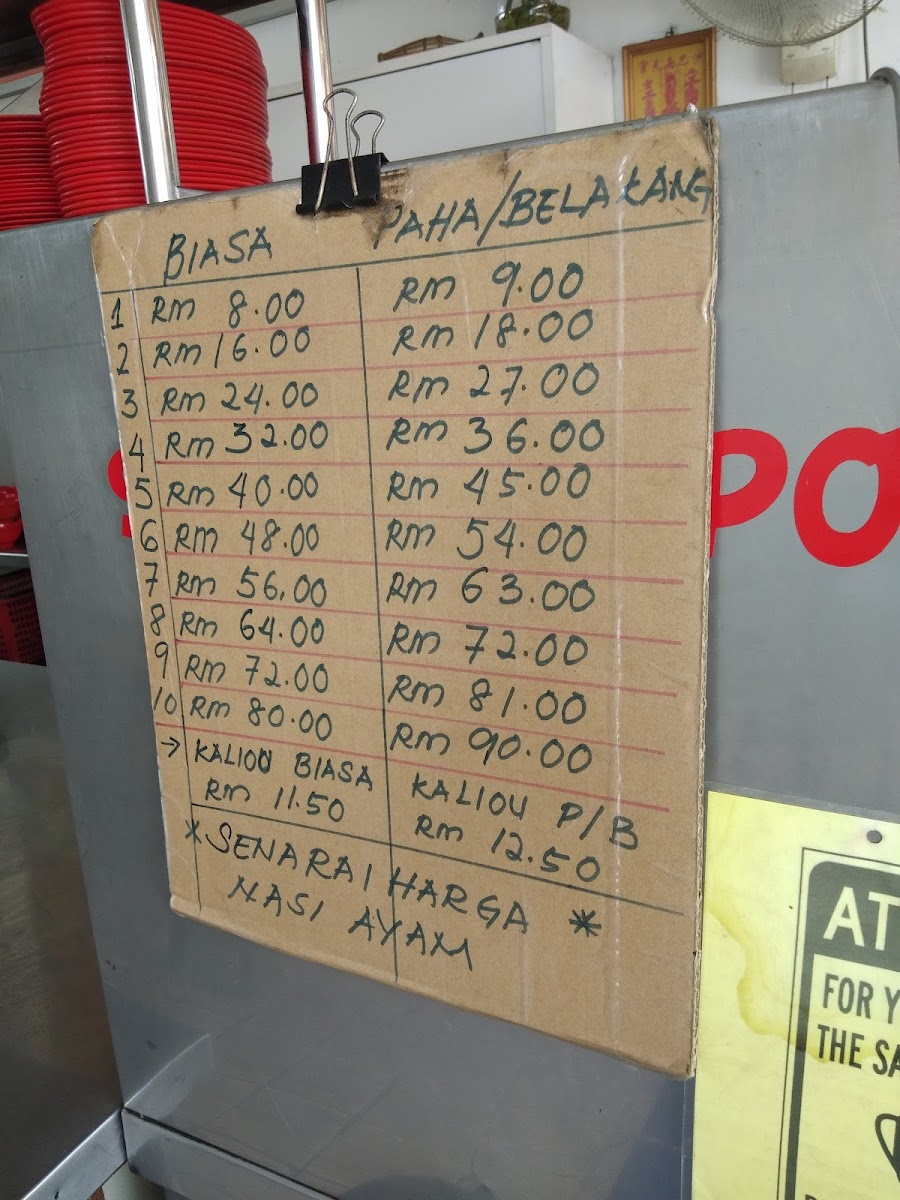 BIASA PAHA/BELAKANG
1 RM 8.00 RM 9.00
2 RM 16.00 RM 18.00
3 RM 24.00 RM 27.00
4 RM 32.00 RM 36.00
5 RM 40.00 RM 45.00
6 RM 48.00 RM 54.00
7 RM 56.00 RM 63.00
8 RM 64.00 RM 72.00
9 RM 72.00 RM 81.00
10 RM 80.00 RM 90.00
→ KALIOU BIASA KALIOU P/B
RM 11.50 RM 12.50
*SENARAI HARGA *
NASI AYAM
PO
AT
FOR Y
THE SA